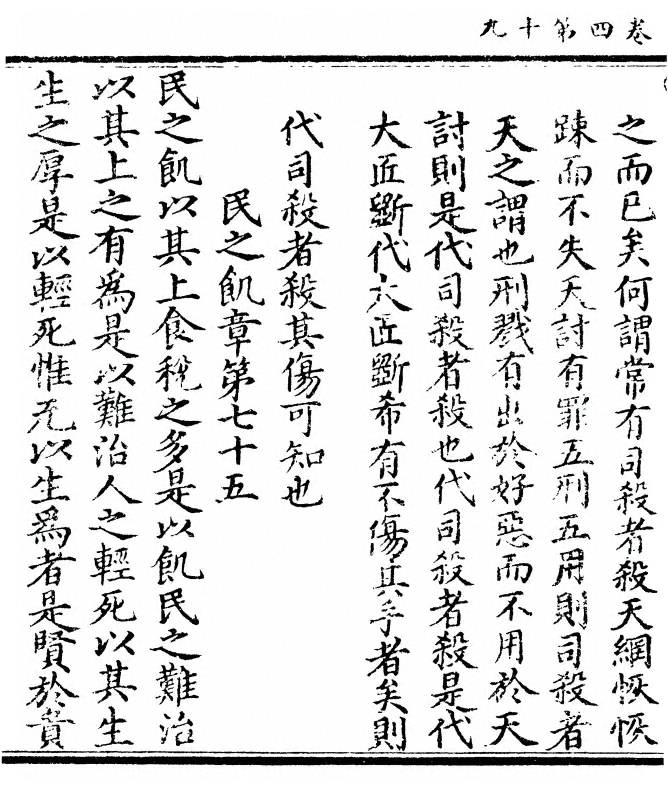 卷四第十九
之而已矣何謂常有司殺者殺天網恢恢
踈而不失天討有罪五刑五用則司殺者
天之謂也刑戮有出於好惡而不用於天
討則是代司殺者殺也代司殺者殺是代
大匠斵代大匠斵希有不傷其手者矣則
代司殺者殺其傷可知也
民之飢章第七十五
民之飢以其上食稅之多是以飢民之難治
以其上之有爲是以難治人之輕死以其生
生之厚是以輕死惟无以生爲者是賢於貴